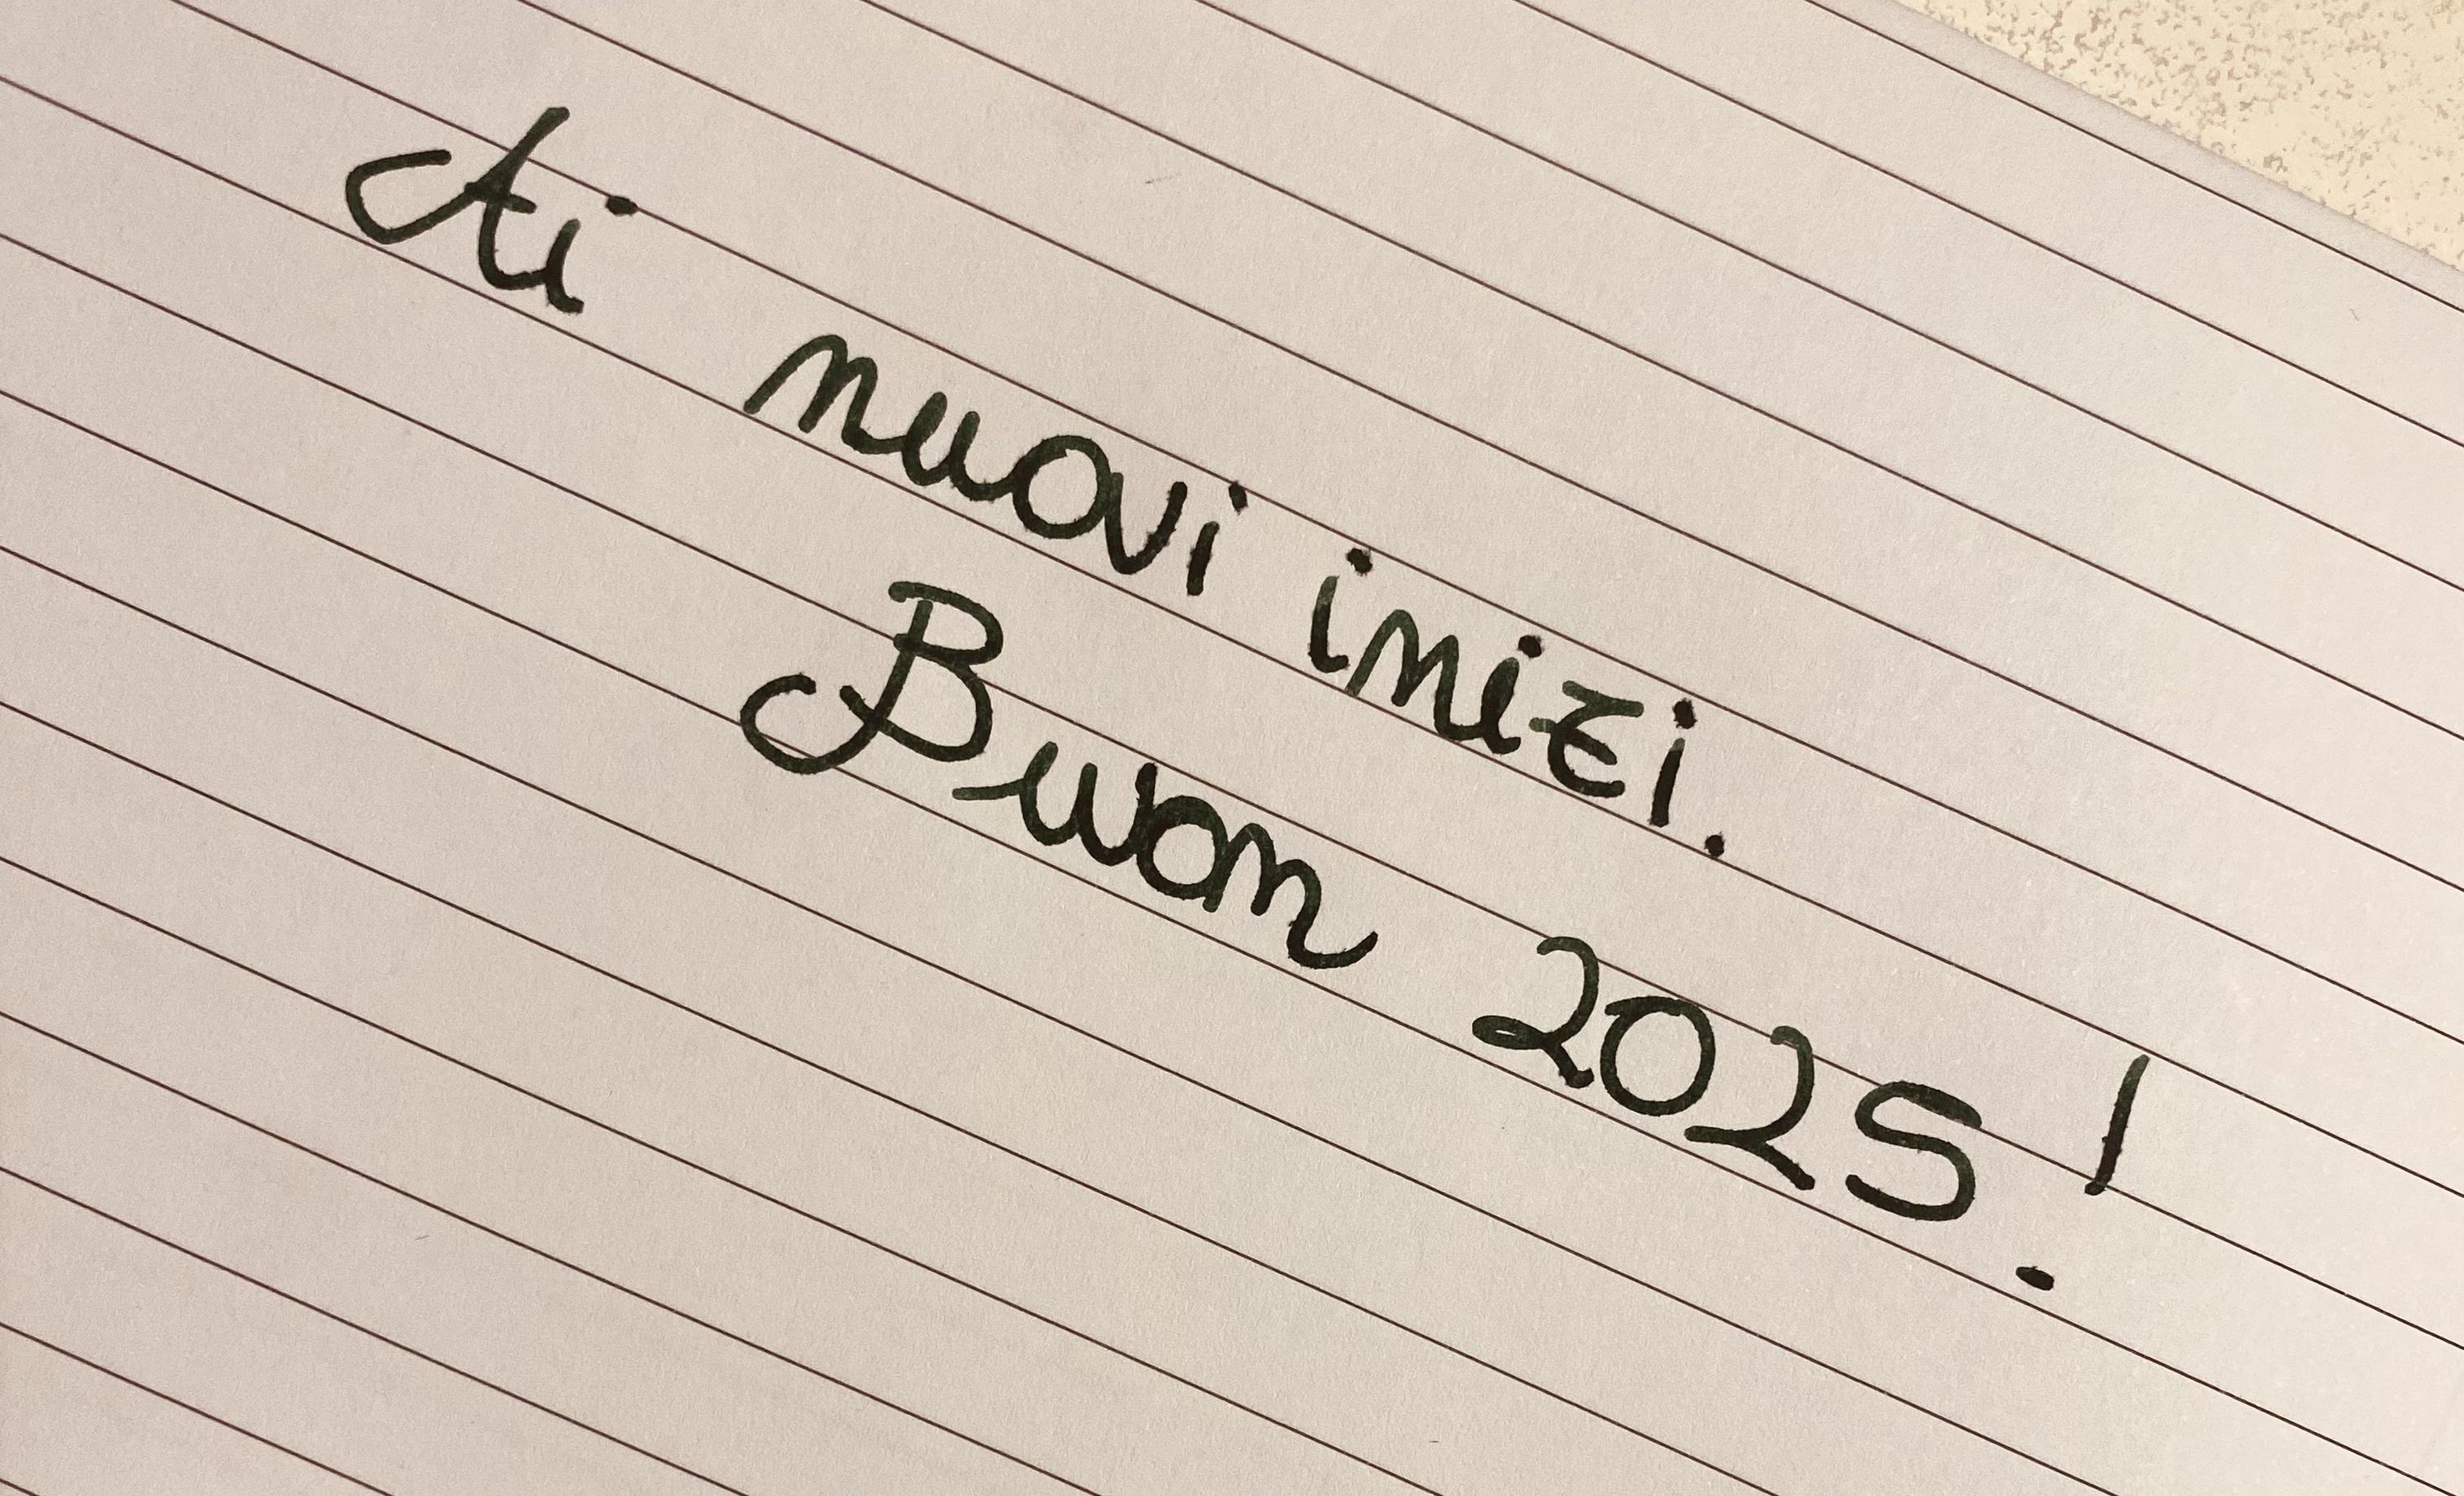 Ai nuovi inizi.
Buon 2025!